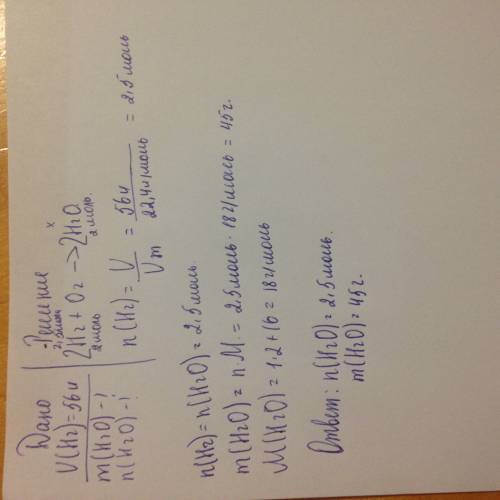 Дано
V(H2)=56л
m(H2O)-?
n(H2O)-?
Решение
2,5моль x
2H2 + O2 -> 2H2O
2моль 2моль.
n(H2) = V/Vm = 56л/22,4л/моль = 2,5моль
n(H2) = n(H2O) = 2,5моль.
m(H2O) = n·M. = 2,5моль · 18г/моль = 45г.
M(H2O) = 1·2+16 = 18г/моль
Ответ: n(H2O) = 2,5моль.
m(H2O) = 45г.